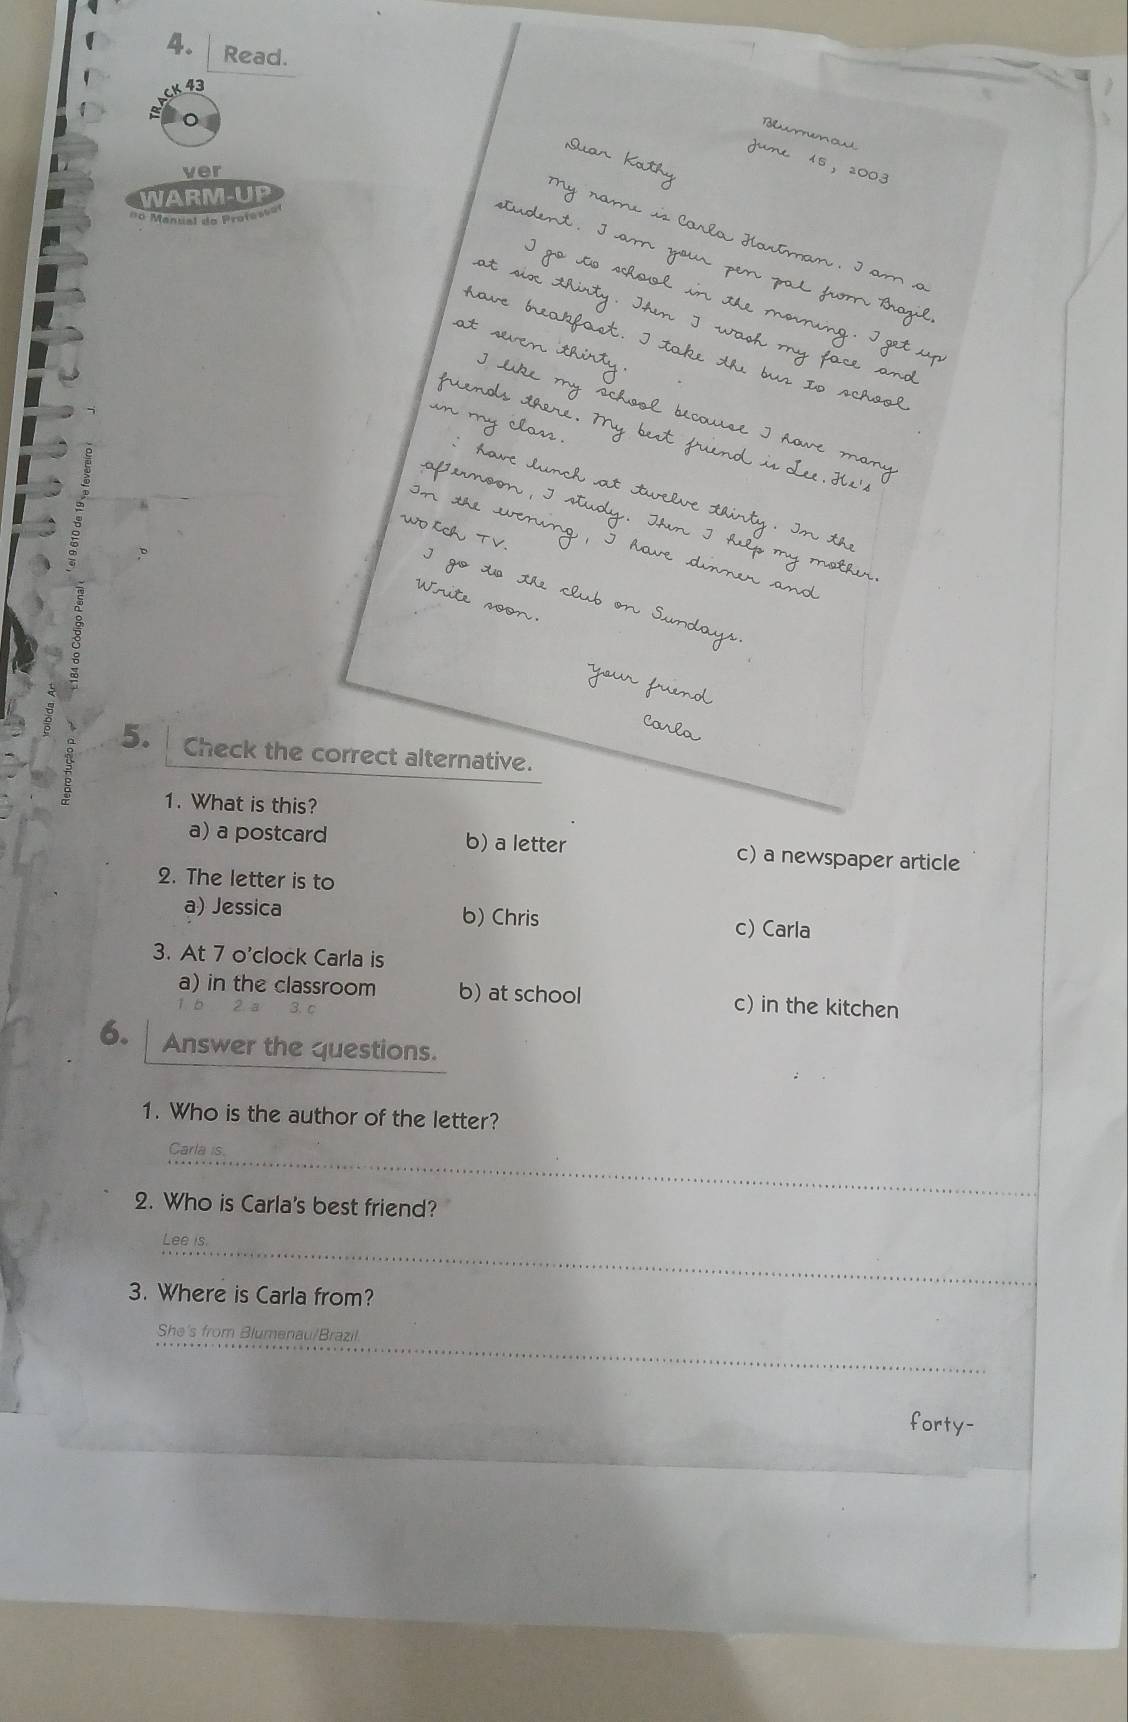 4. Read.
TRACK 43
ver
WARM-UP
no Manual do Professor
Blumenau
June 15, 2003
Dear Kathy
My name is Carla Hartman. I am a
student. I am your pen pal from Brazil.
I go to school in the morning. I get up
at six thirty. Then I wash my face and
have breakfast. I take the bus to school
at seven thirty.
I like my school because I have many
friends there. My best friend is Lee. He's
in my class.
have lunch at twelve thirty. In the
afternoon, I study. Then I help my mother.
In the evening, I have dinner and
watch TV.
I go to the club on Sundays.
Write soon.
Your friend
Carla
5. Check the correct alternative.
1. What is this?
a) a postcard b) a letter c) a newspaper article
2. The letter is to
a) Jessica b) Chris c) Carla
3. At 7 o'clock Carla is
a) in the classroom b) at school c) in the kitchen
1. b 2. a 3. c
6. Answer the questions.
1. Who is the author of the letter?
Carla is.
2. Who is Carla's best friend?
Lee is.
3. Where is Carla from?
She's from Blumenau/Brazil.
forty-
184 do Código Penal 9.610 de 19 fevereiro